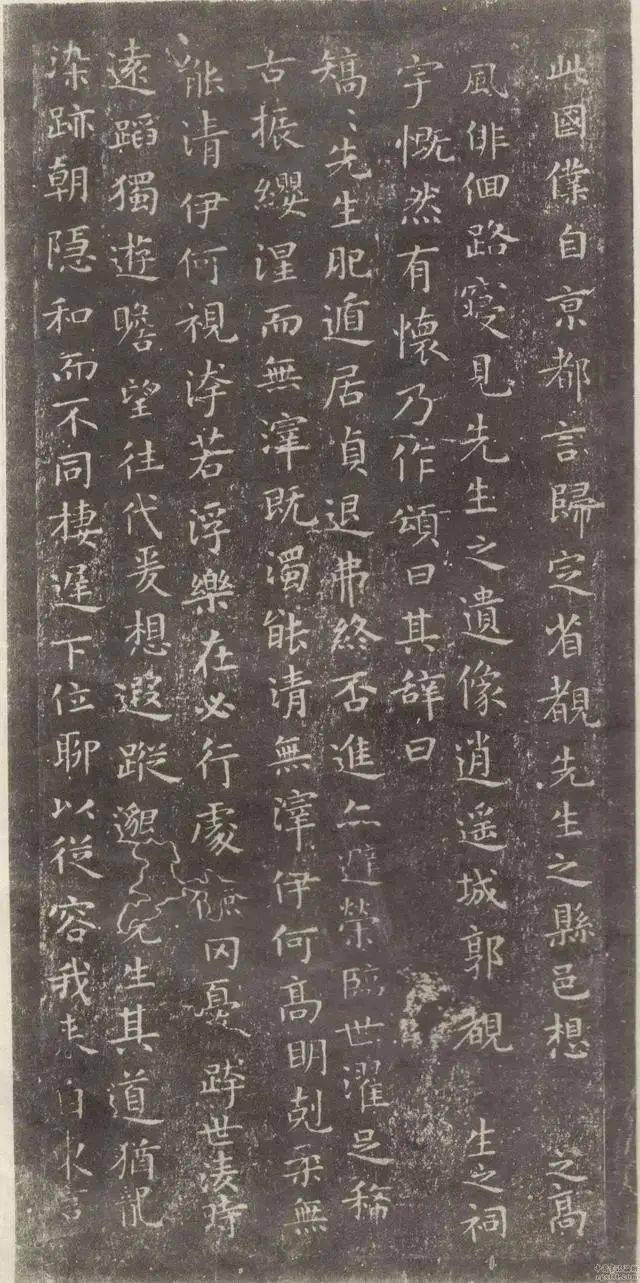 此國僕自京都言歸定省覩先生之縣邑想 之高
風俳佪路寢見先生之遺像逍遥城郭覩 生之祠
宇慨然有懷乃作頌曰其辭曰
矯〻先生肥遁居貞退弗終否進亦避榮臨世濯足稀
古振纓涅而無滓既濁能清無滓伊何高明剋柔無
能清伊何視洿若浮樂在必行處儉罔憂跨世淩時
遠蹈獨遊瞻望往代爰想遐蹤邈 先生其道猶龍
染跡朝隱和而不同棲遲下位聊以從容我来自東言